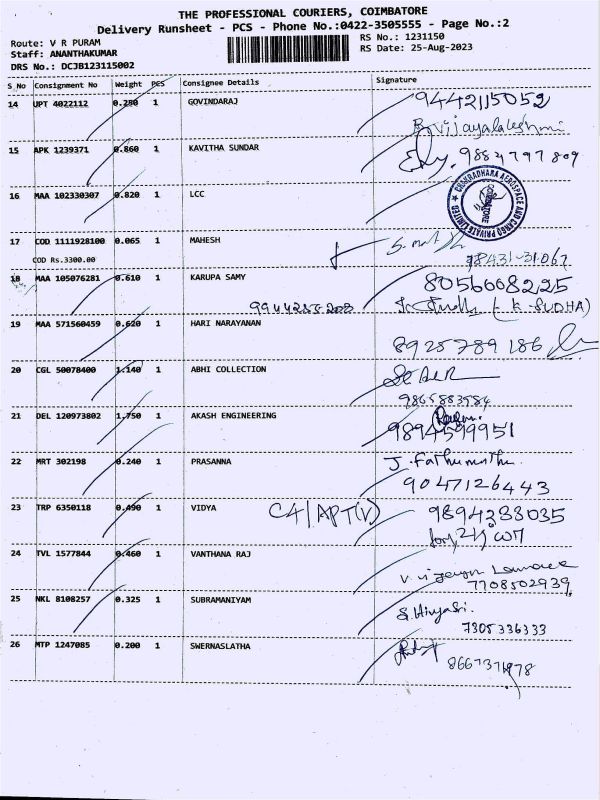 THE PROFESSIONAL COURIERS, COIMBATORE
Delivery Runsheet - PCS - Phone No.:0422-3505555 - Page No.:2
Route: V R PURAM
RS No.: 1231150
Staff: ANANTHAKUMAR
RS Date: 25-Aug-2023
DRS No.: DCJB123115002
S_No Consignment No Weight PCS Consignee Details Signature
14 UPT 4022112 0.250 1 GOVINDARAJ 9442115052
B. Vijayalakshmi
15 APK 1239371 0.860 1 KAVITHA SUNDAR 9884797809
16 MAA 102330307 0.820 1 LCC
CHAKRADHARA AEROSPACE AND CARGO PRIVATE LIMITED
COIMBATORE
17 COD 1111928100 0.065 1 MAHESH
COD Rs.3300.00 98431-31067
18 MAA 105076281 0.610 1 KARUPA SAMY 8056608225
9944256208 (K-SUDHA)
19 MAA 571560459 0.620 1 HARI NARAYANAN
8925789186
20 CGL 50078400 1.140 1 ABHI COLLECTION
9865883984
21 DEL 120973802 1.750 1 AKASH ENGINEERING
9894599951
22 MRT 302198 0.240 1 PRASANNA J. Fathimuthu
9047126443
23 TRP 6350118 0.490 1 VIDYA C4/APT(V) 9894238035
24 TVL 1577844 0.460 1 VANTHANA RAJ
7708502939
25 NKL 8108257 0.325 1 SUBRAMANIYAM
7305336333
26 MTP 1247085 0.200 1 SWERNASLATHA
8667371978